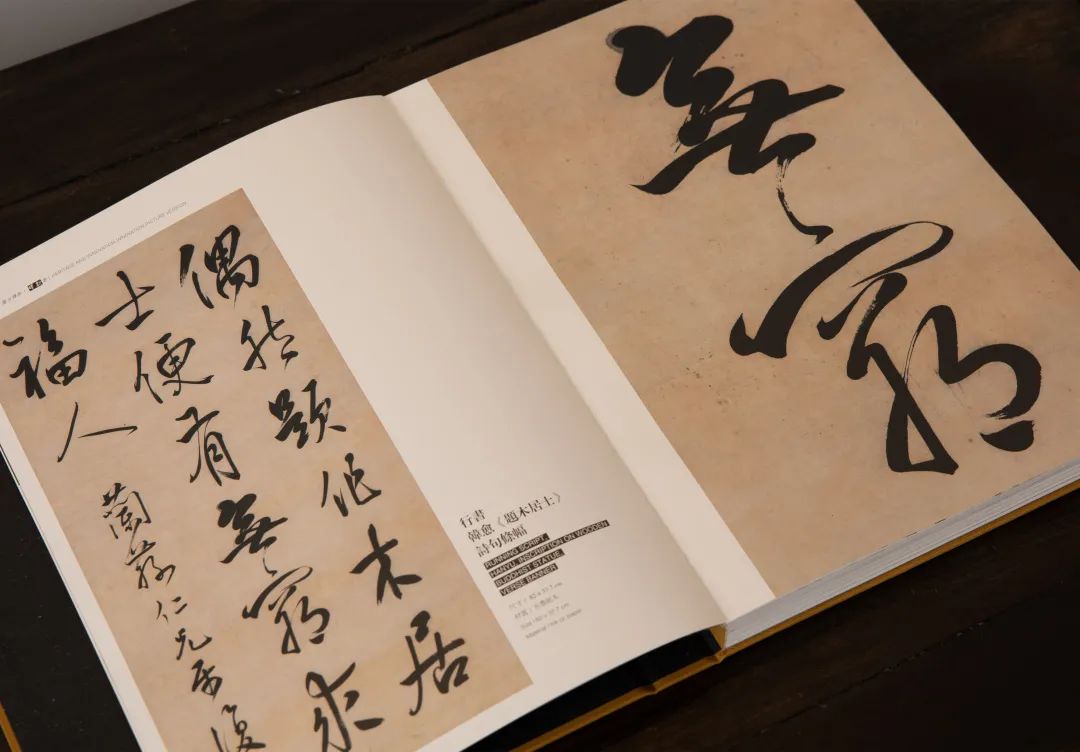 偶然題作木居
士便有無窮求
福人
蘭蓀仁兄屬
行書
韓愈《題木居士》
詩句條幅
RUNNING SCRIPT,
HANYU, INSCRIPTION ON WOODEN
BUDDHIST STATUE,
VERSE BANNER
無窮